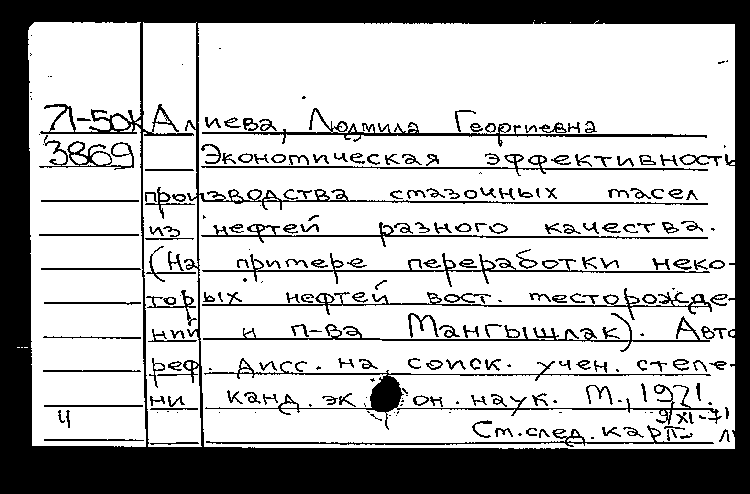 71-50К Алиева, Людмила Георгиевна
3869 Экономическая эффективность
производства смазочных масел
из нефтей разного качества.
(На примере переработки неко-
торых нефтей вост. месторожде-
ний и п-ва Мангышлак). Авто
реф. дисс. на соиск. учен. степе-
ни канд. экон. наук. М., 1971.
ч 9/XI-71
См. след. карт.